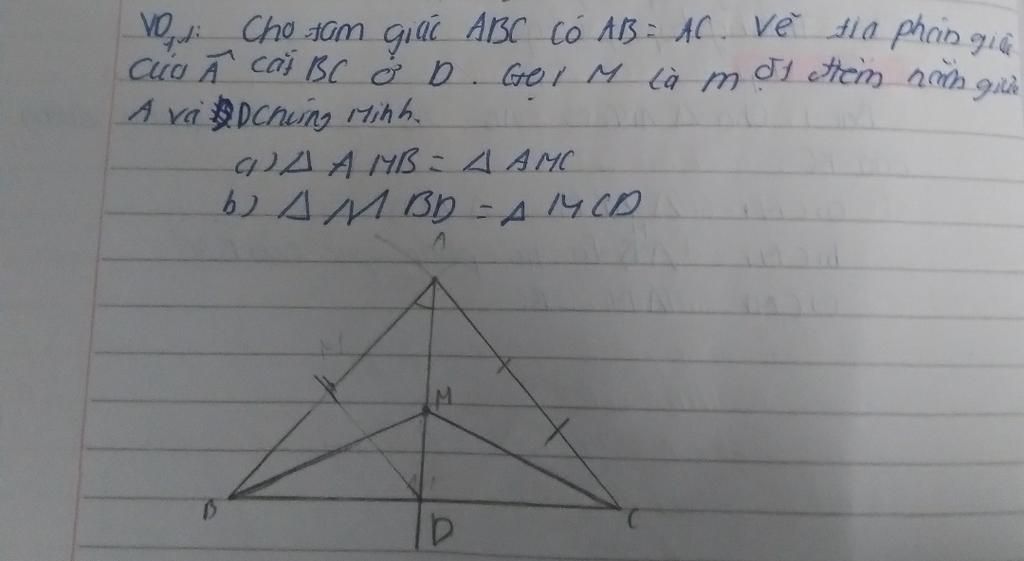 VD1: Cho tam giác ABC có AB = AC. Vẽ tia phân giác
của Â cắt BC ở D. Gọi M là một điểm nằm giữa
A và D chứng Minh.
a) Δ AMB = Δ AMC
b) Δ MBD = Δ MCD
A
M
M
B
D
C